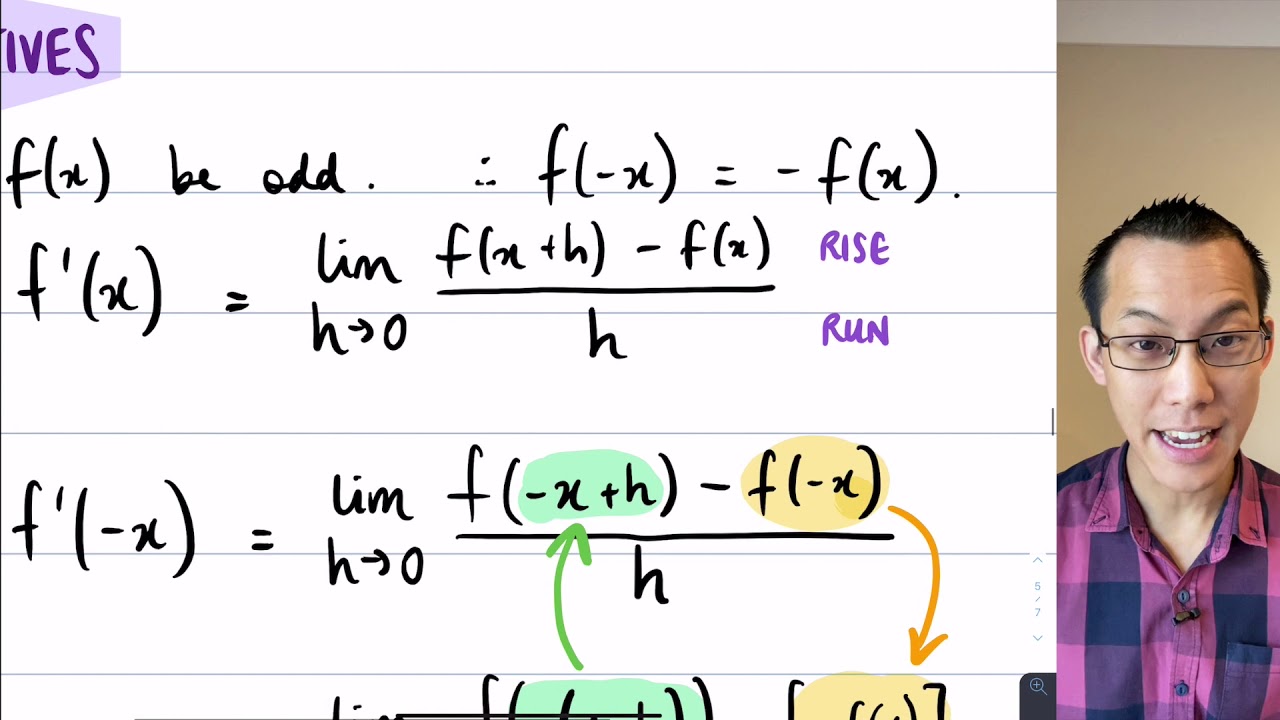 TIVES
f(x) be odd. ∴ f(-x) = -f(x).
f'(x) = lim h→0 f(x+h) - f(x) / h RISE RUN
f'(-x) = lim h→0 f(-x+h) - f(-x) / h
5 / 7